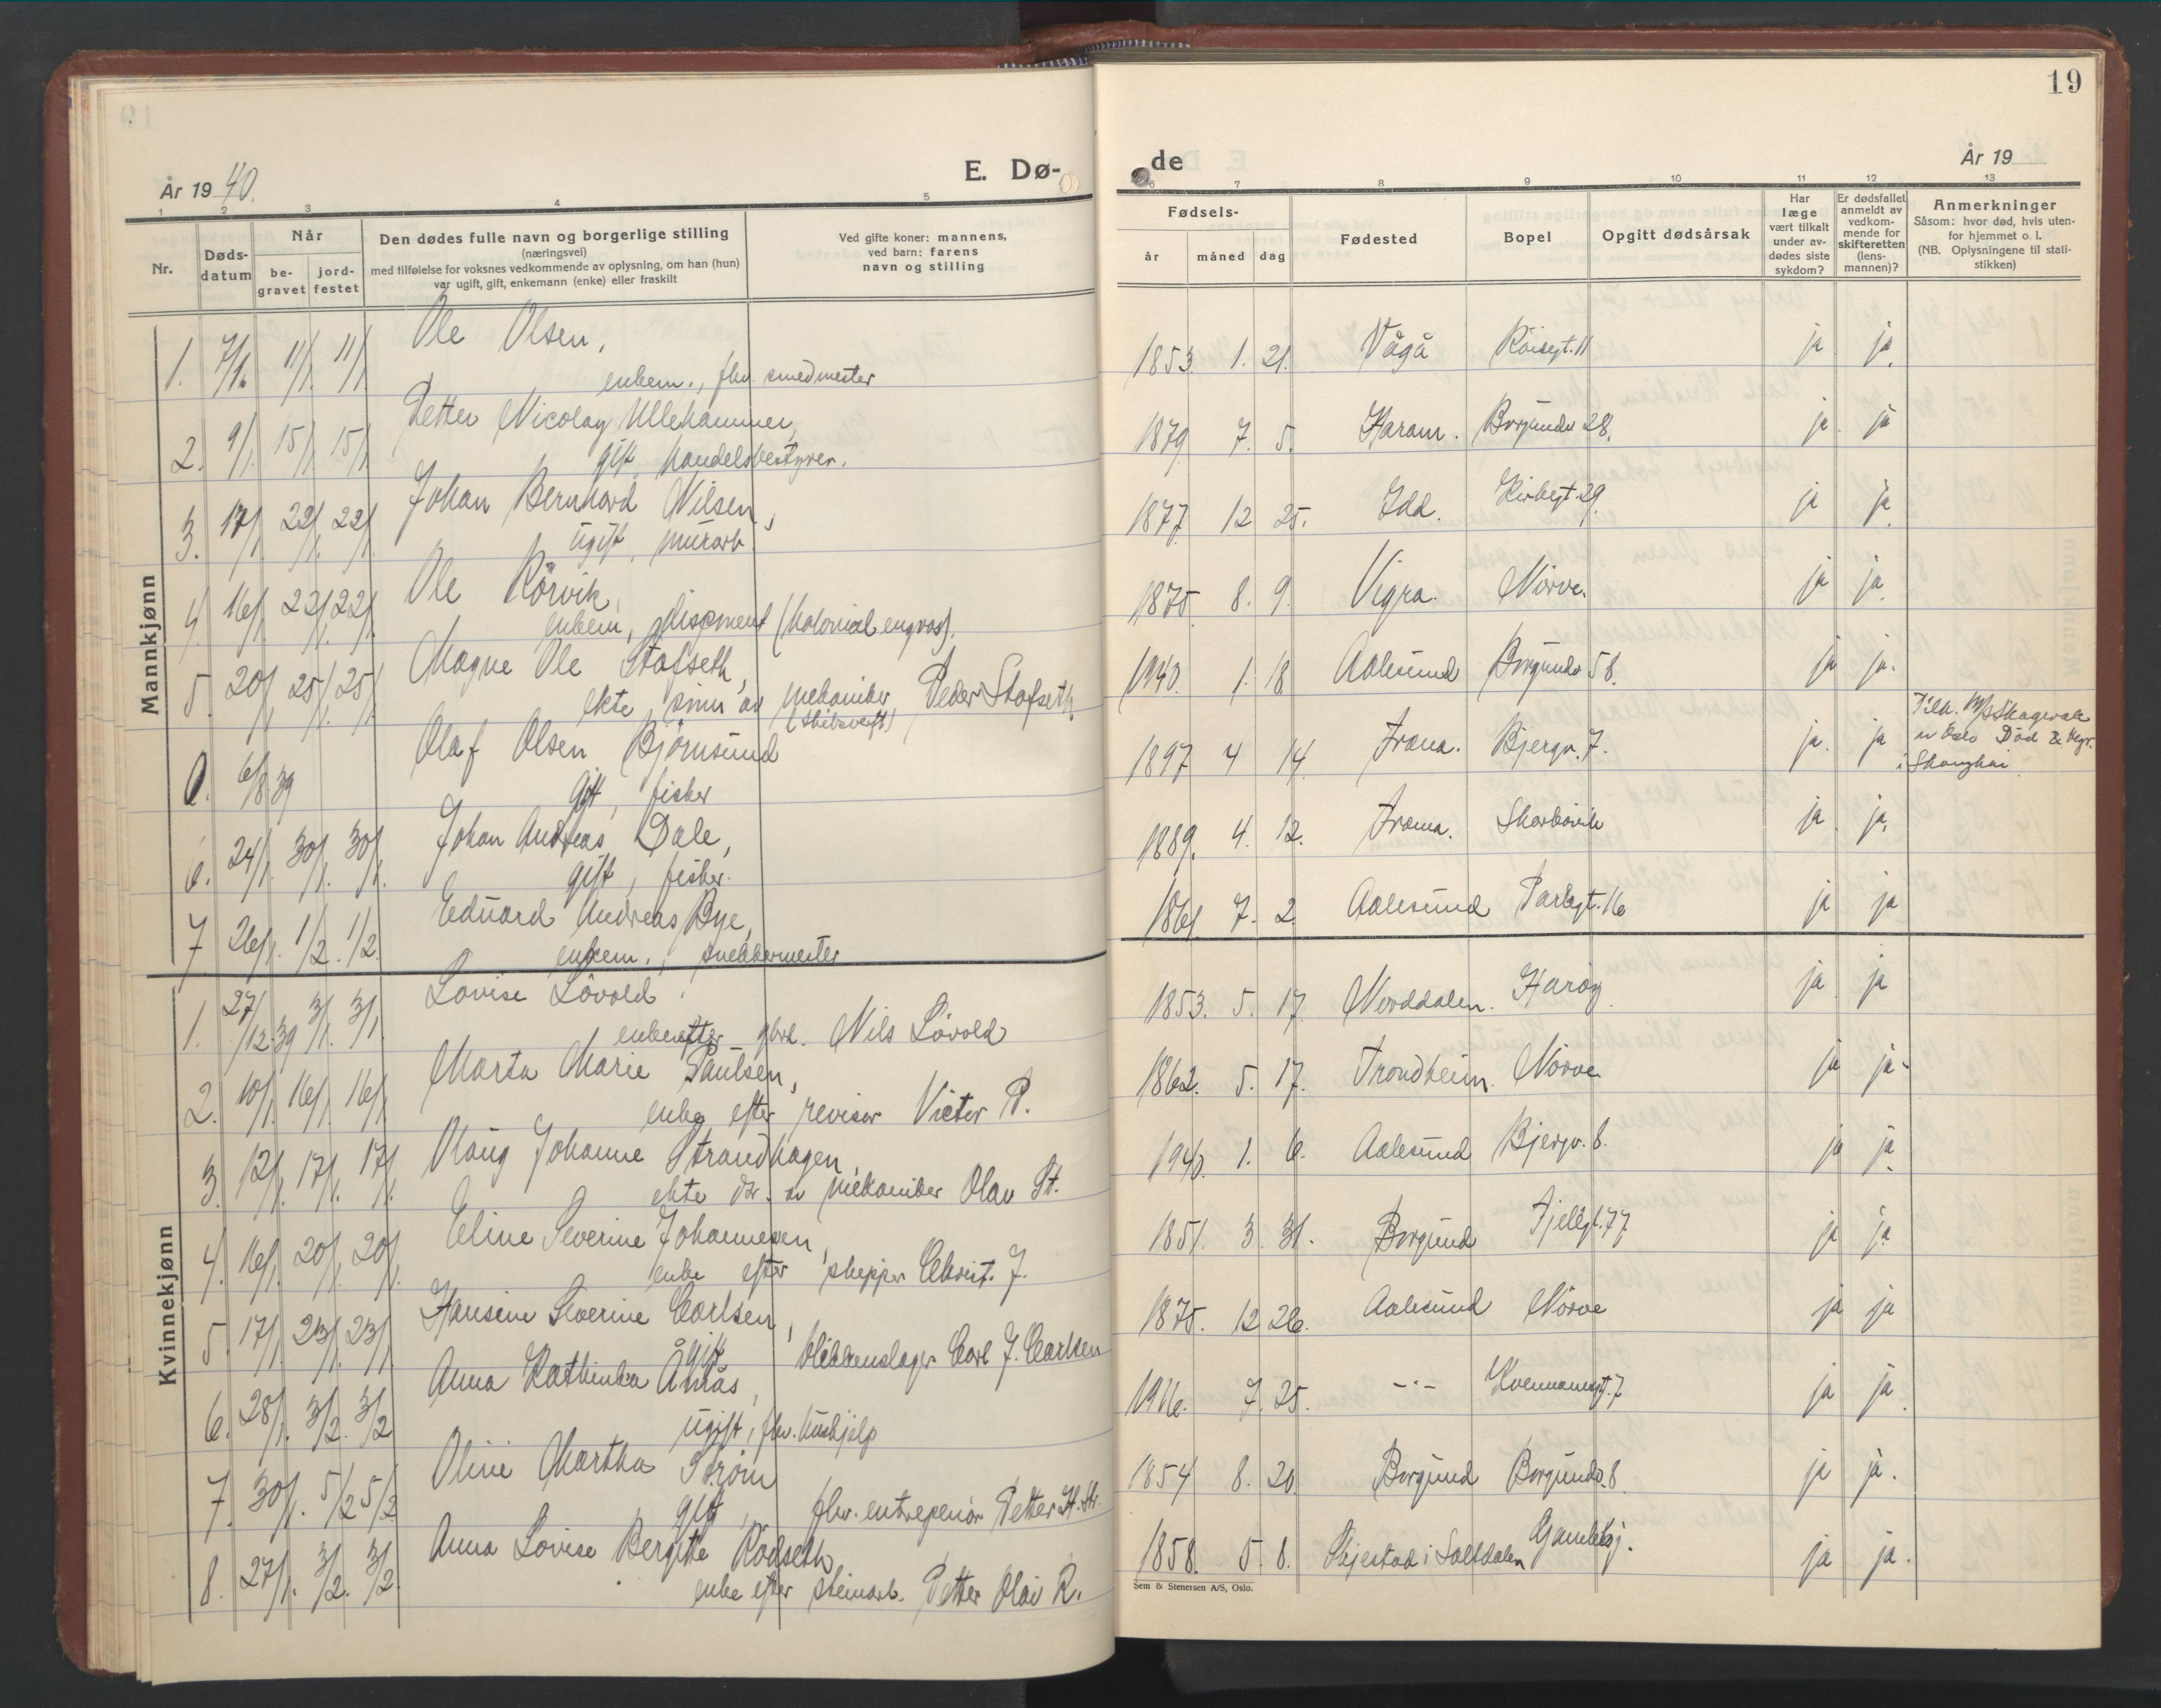 19
År 19 40.
E. Dø-
de
År 19
1 2 3 4 5 6 7 8 9 10 11 12 13
Nr.
Døds-
datum
Når
be-
gravet
jord-
festet
Den dødes fulle navn og borgerlige stilling
(næringsvei)
med tilføielse for voksnes vedkommende av oplysning, om han (hun)
var ugift, gift, enkemann (enke) eller fraskilt
Ved gifte koner: mannens,
ved barn: farens
navn og stilling
Fødsels-
år måned dag
Fødested
Bopel
Opgitt dødsårsak
Har
læge
vært tilkalt
under av-
dødes siste
sykdom?
Er dødsfallet
anmeldt av
vedkom-
mende for
skifteretten
(lens-
mannen)?
Anmerkninger
Såsom: hvor død, hvis uten-
for hjemmet o. l.
(NB. Oplysningene til stati-
stikken)
Mannkjønn
1. 7/1. 11/1. 11/1. Ole Olsen, 1853. 1. 21. Vågå Röisegt. 11 ja ja.
enkem., fhv. smedmester
2. 9/1. 15/1. 15/1. Petter Nicolay Ullehammer, 1879 7. 5. Haram. Borgundv 28. ja ja
gift, handelsbestyrer.
3. 17/1. 22/1. 22/1. Johan Bernhard Nilsen, 1877 12 25. Idd. Kirkegt. 29. ja ja.
ugift, murarb.
4. 16/1. 22/1. 22/1. Ole Rörvik, 1875 8. 9. Vigra. Nörve. ja ja.
enkem, disponent (kolonial engros).
5. 20/1. 25/1. 25/1. Magne Ole Stafseth, 1940. 1. 18 Aalesund Borgundv 58. ja ja.
ekte sönn av mekaniker Peder Stafseth
0. 6/8 39 Olaf Olsen Björnsund 1897 4 14. Fræna. Bjergv. 7. ja. ja Tilh. M/S Skagerak
av Oslo Död & begr.
i Shanghai
gift, fisker
6. 24/1. 30/1. 30/1. Johan Andreas Dale, 1889. 4. 12. Fræna. Skarbövik ja ja.
gift, fisker.
7 26/1. 1/2. 1/2. Eduard Andreas Bye, 1861. 7. 2. Aalesund Parkgt. 16 ja ja
enkem., snekkermester
Kvinnekjønn
1. 27/12.39 3/1. 3/1. Lovise Lövold 1853. 5. 17. Norddalen. Haröy. ja ja
enke efter gbrk. Nils Lövold
2. 10/1. 16/1. 16/1. Marta Marie Paulsen, 1862. 5. 17. Trondheim. Nörve ja ja
enke efter revisor Victor P.
3. 12/1. 17/1. 17/1. Olaug Johanne Strandhagen, 1940. 1. 6. Aalesund Bjergv. 8. ja ja.
ekte dtr. av mekaniker Olav St.
4. 16/1. 20/1. 20/1. Eline Severine Johannesen, 1851. 3. 31. Borgund Fjellgt. 77 ja ja
enke efter skipper Christ. J.
5. 17/1. 23/1. 23/1. Hansine Severine Carlsen, 1875. 12 26. Aalesund Nörve ja ja
gift blikkenslager Carl J. Carlsen
6. 28/1. 3/2. 3/2 Anna Kathinka Åmås, 1916. 7. 25. -"- 7 ja ja.
ugift, fhv. hushjelp
7. 30/1. 5/2 5/2 Oline Martha Ström 1854 8. 20. Borgund Borgundv. 8. ja ja.
gift, fhv. entreprenör Petter H. Str.
8. 27/1. 3/2. 3/2. Anna Lovise Bergitte Rödseth, 1858. 5. 8. Skjestad i Saltdalen Gamlehj. ja ja.
enke efter steinarb. Petter Olai R.
Sem & Stenersen A/S, Oslo.